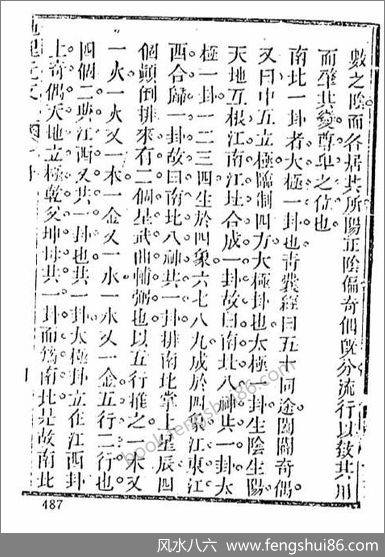 數之陰而各居其所陽正陰偏奇偶旣分流行以致其用
而肇其變尊卑之位也
南北一卦者大極一卦也靑囊經曰五十同途闔闢奇偶
又曰中五立極臨制四方大極卦也太極一卦生陰生陽
天地互根江南江北合成一卦故曰南北八神共一卦太
極一卦一二三四生於四象六七八九成於四象江東江
西合歸一卦故曰南北八神共一卦排南北掌上星辰四
個顛倒排來有二個是武曲輔弼也以五行推之一木又
一火一火又一木一金又一水一水又一金五行二行也
四個二卽江西又共一卦也共一卦太極卦立在江西卦
上奇偶天地立極乾父坤母共一卦而爲南北是故南北
487
book.fengshui86.com
风水八六 - www.fengshui86.com